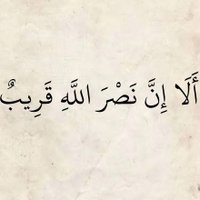 أَلَا إِنَّ نَصْرَ اللَّهِ قَرِيبٌ